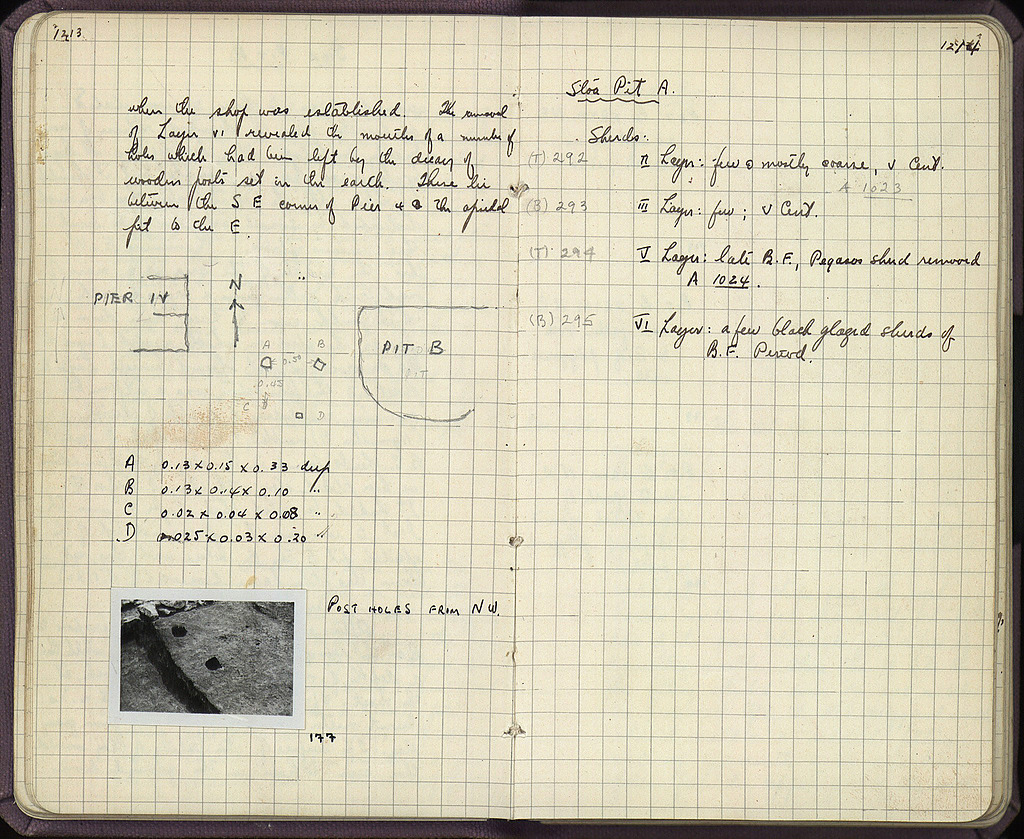 1213
when the shop was established. The removal
of Layer VI revealed the mouths of a number of
holes which had been left by the decay of
wooden posts set in the earth. These lie
between the S E corner of Pier 4 & the
pit to the E.
PIER IV
N
A B
0.50
PIT B
PIT
0.45
C
D
A 0.13 x 0.15 x 0.33 deep
B 0.13 x 0.14 x 0.10 "
C 0.02 x 0.04 x 0.08 "
D 0.025 x 0.03 x 0.20 "
POST HOLES FROM NW.
177
1214
Stoa Pit A.
Sherds:
(T) 292 II Layer: few & mostly coarse, V Cent.
A 1023
(B) 293 III Layer: few; V Cent.
(T) 294 V Layer: late B.F., Pegasos sherd removed
A 1024.
(B) 295 VI Layer: a few black glazed sherds of
B.F. Period.